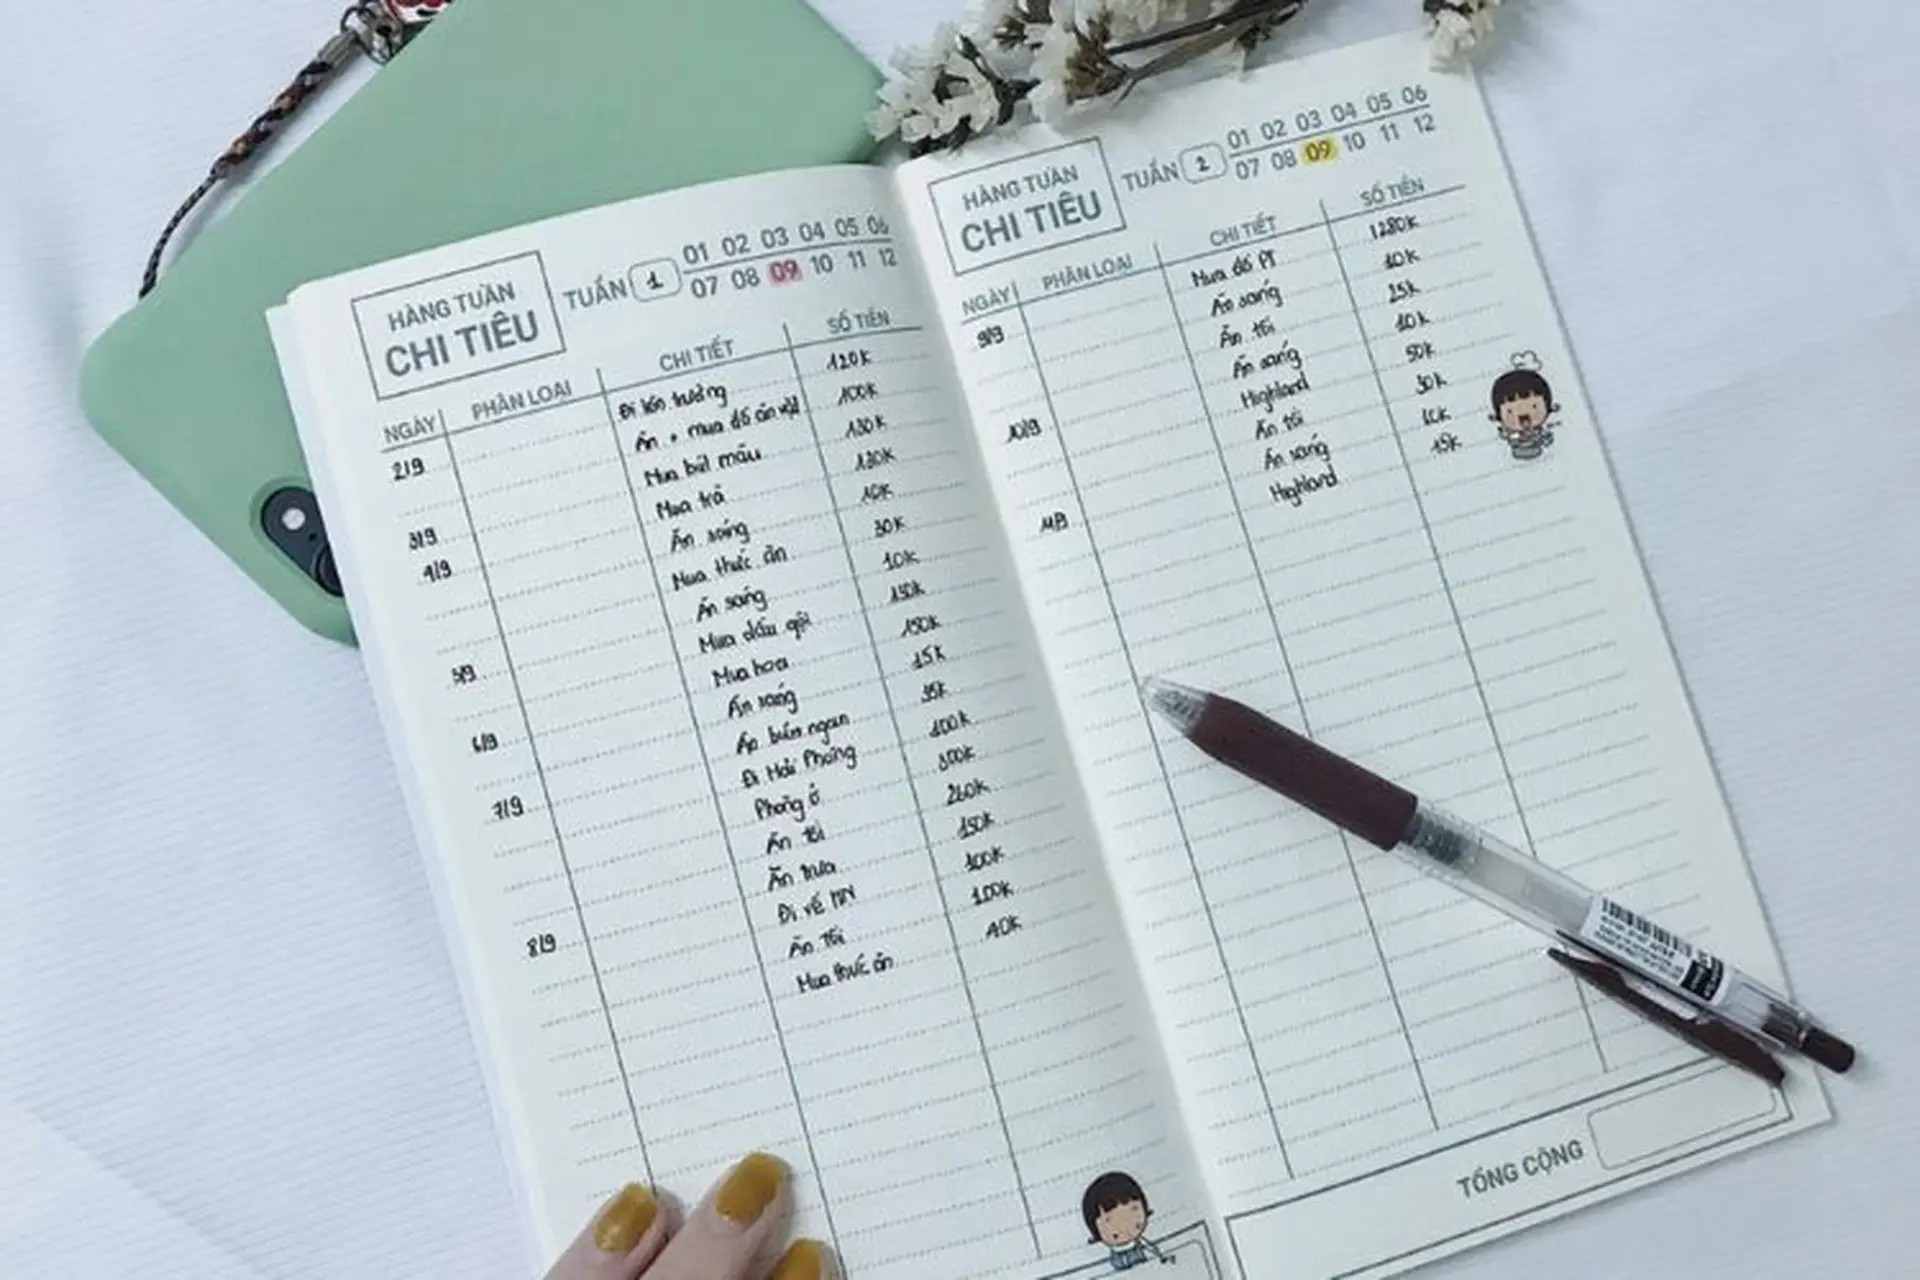 HÀNG TUẦN
CHI TIÊU
TUẦN 1
01 02 03 04 05 06
07 08 09 10 11 12
NGÀY PHÂN LOẠI CHI TIẾT SỐ TIỀN
2/9 Đi lên trường 120K
Ăn + mua đồ ăn vặt 100K
3/9 Mua bút màu 130K
4/9 Mua trà 130K
Ăn sáng 10K
Mua thức ăn 30K
5/9 Ăn sáng 10K
Mua dầu gội 150K
6/9 Mua hoa 150K
Ăn sáng 15K
7/9 Ăn bún ngan 35K
Đi Hải Phòng 100K
Phòng ở 300K
Ăn tối 260K
8/9 Ăn trưa 150K
Đi về 100K
Ăn tối 100K
Mua thức ăn 40K
HÀNG TUẦN
CHI TIÊU
TUẦN 2
01 02 03 04 05 06
07 08 09 10 11 12
NGÀY PHÂN LOẠI CHI TIẾT SỐ TIỀN
9/9 Mua đồ PT 1280K
Ăn sáng 10K
Ăn tối 25K
10/9 Ăn sáng 10K
Highland 50K
Ăn tối 30K
11/9 Ăn sáng 10K
Highland
TỔNG CỘNG